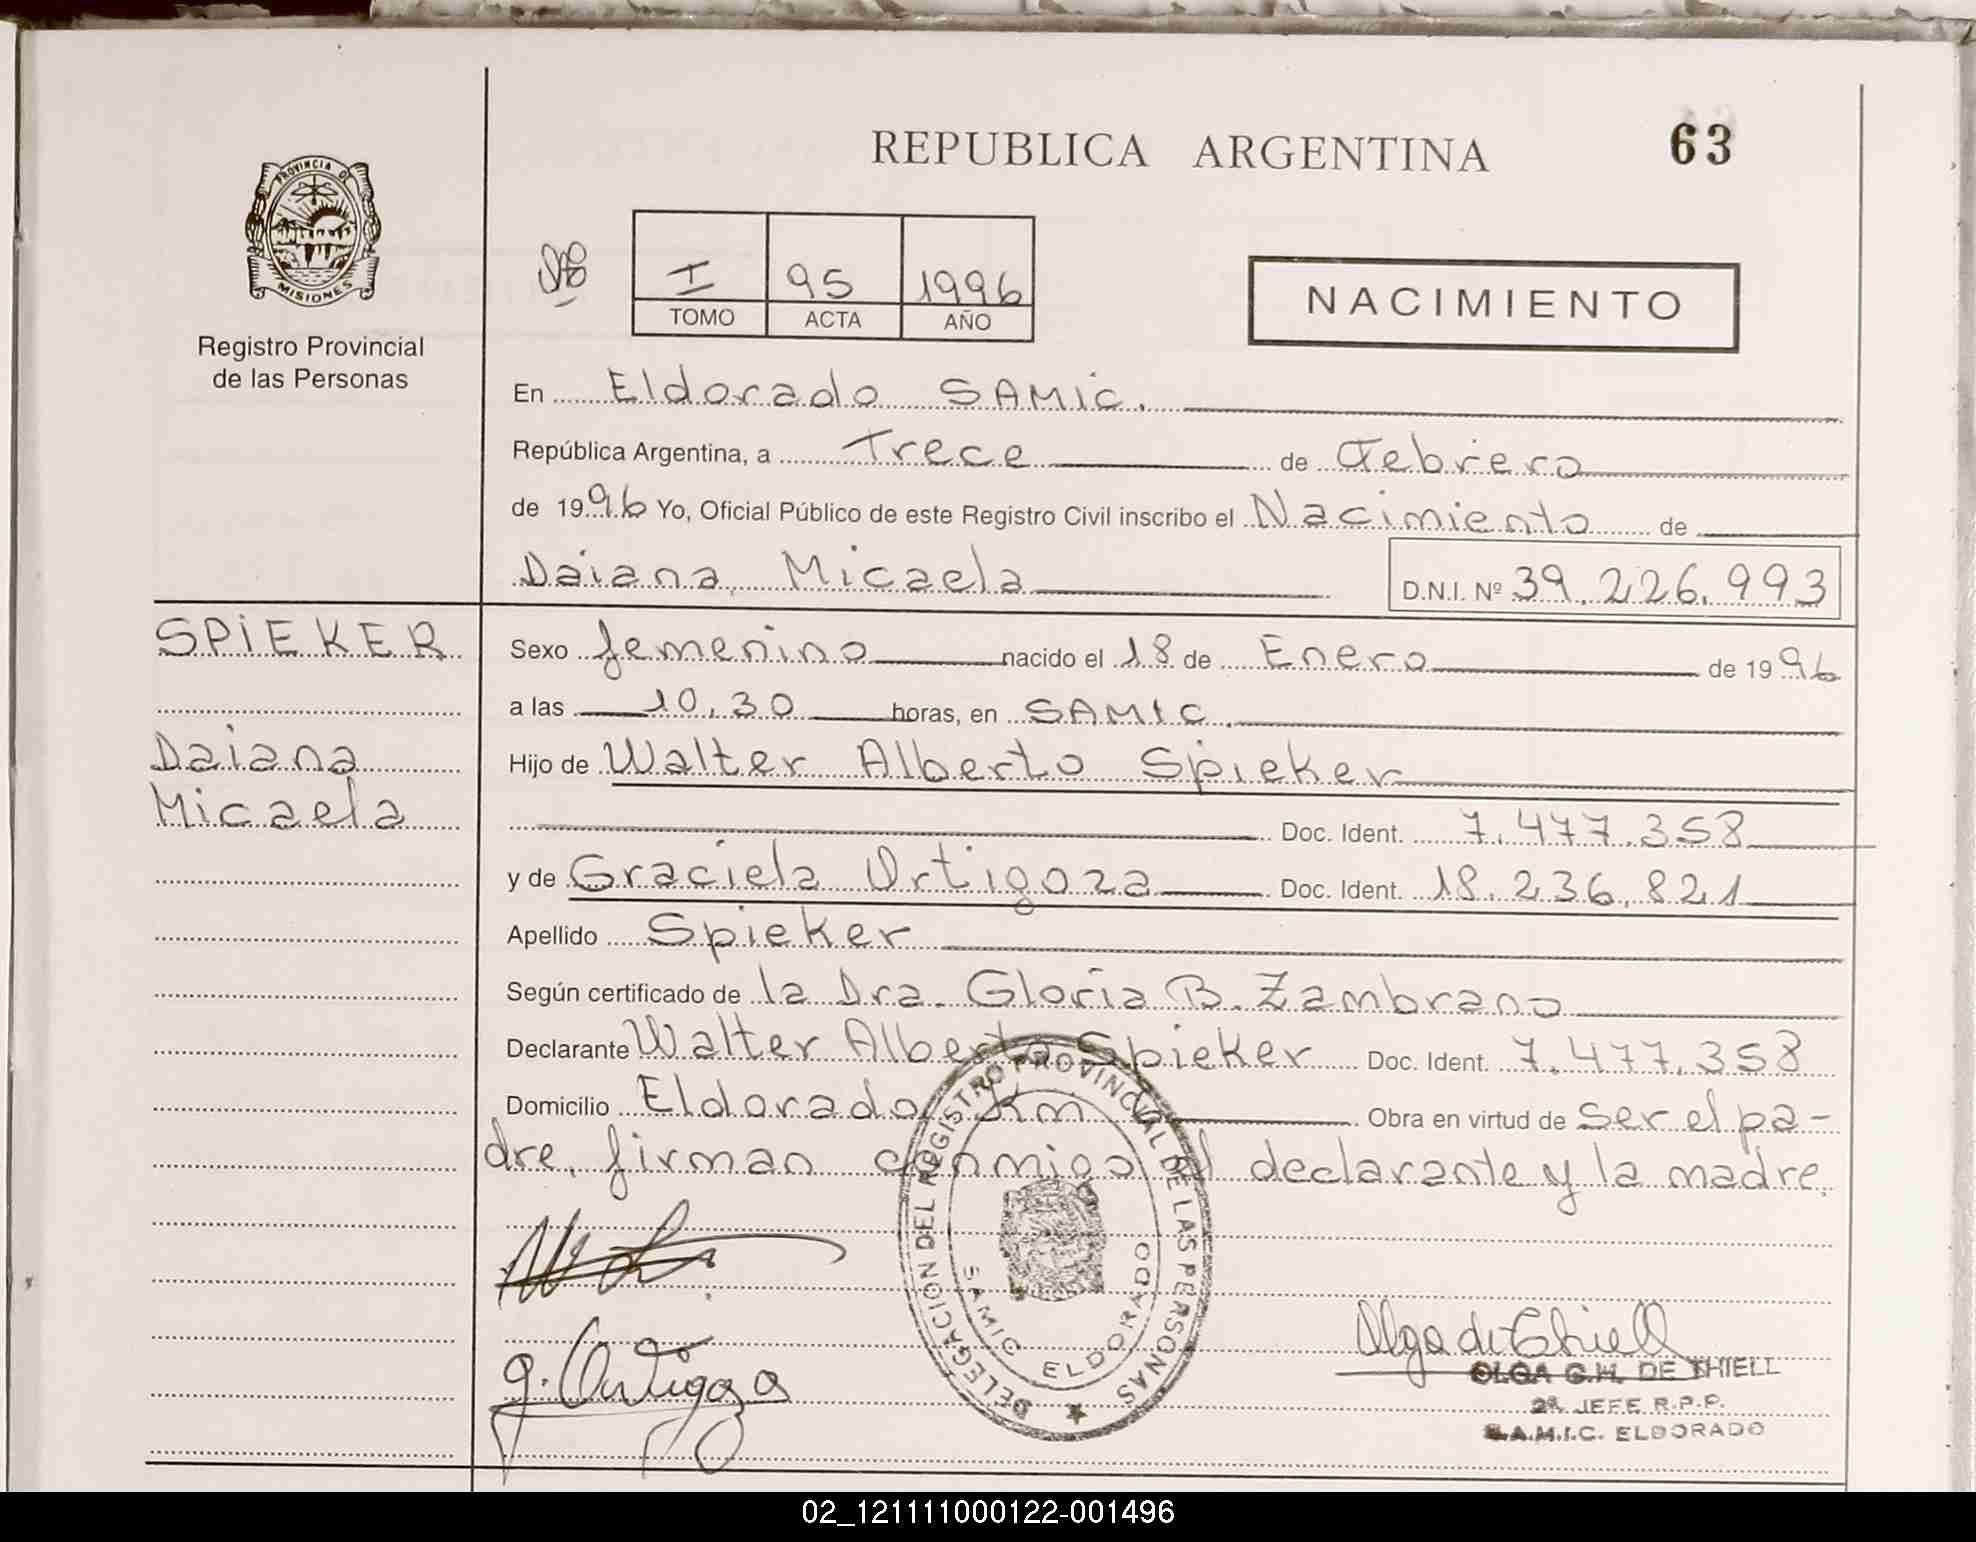 REPUBLICA ARGENTINA
63
PROVINCIA DE
MISIONES
Registro Provincial
de las Personas
I 95 1996
TOMO ACTA AÑO
NACIMIENTO
En Eldorado SAMIC.
República Argentina, a Trece de Febrero
de 1996 Yo, Oficial Público de este Registro Civil inscribo el Nacimiento de
Daiana Micaela D.N.I. Nº 39.226.993
SPIEKER
Daiana
Micaela
Sexo femenino nacido el 18 de Enero de 1996
a las 10,30 horas, en SAMIC.
Hijo de Walter Alberto Spieker
Doc. Ident. 7.477.358
y de Graciela Ortigoza Doc. Ident. 18.236.821
Apellido Spieker
Según certificado de la Dra. Gloria B. Zambrano
Declarante Walter Alberto Spieker Doc. Ident. 7.477.358
Domicilio Eldorado Km Obra en virtud de Ser el pa-
dre, firman conmigo el declarante y la madre.
DELEGACION DEL REGISTRO PROVINCIAL DE LAS PERSONAS
SAMIC ELDORADO
g. Ortigoza
Olga de Thiell
OLGA G.H. DE THIELL
2ª JEFE R.P.P.
S.A.M.I.C. ELDORADO
02_121111000122-001496